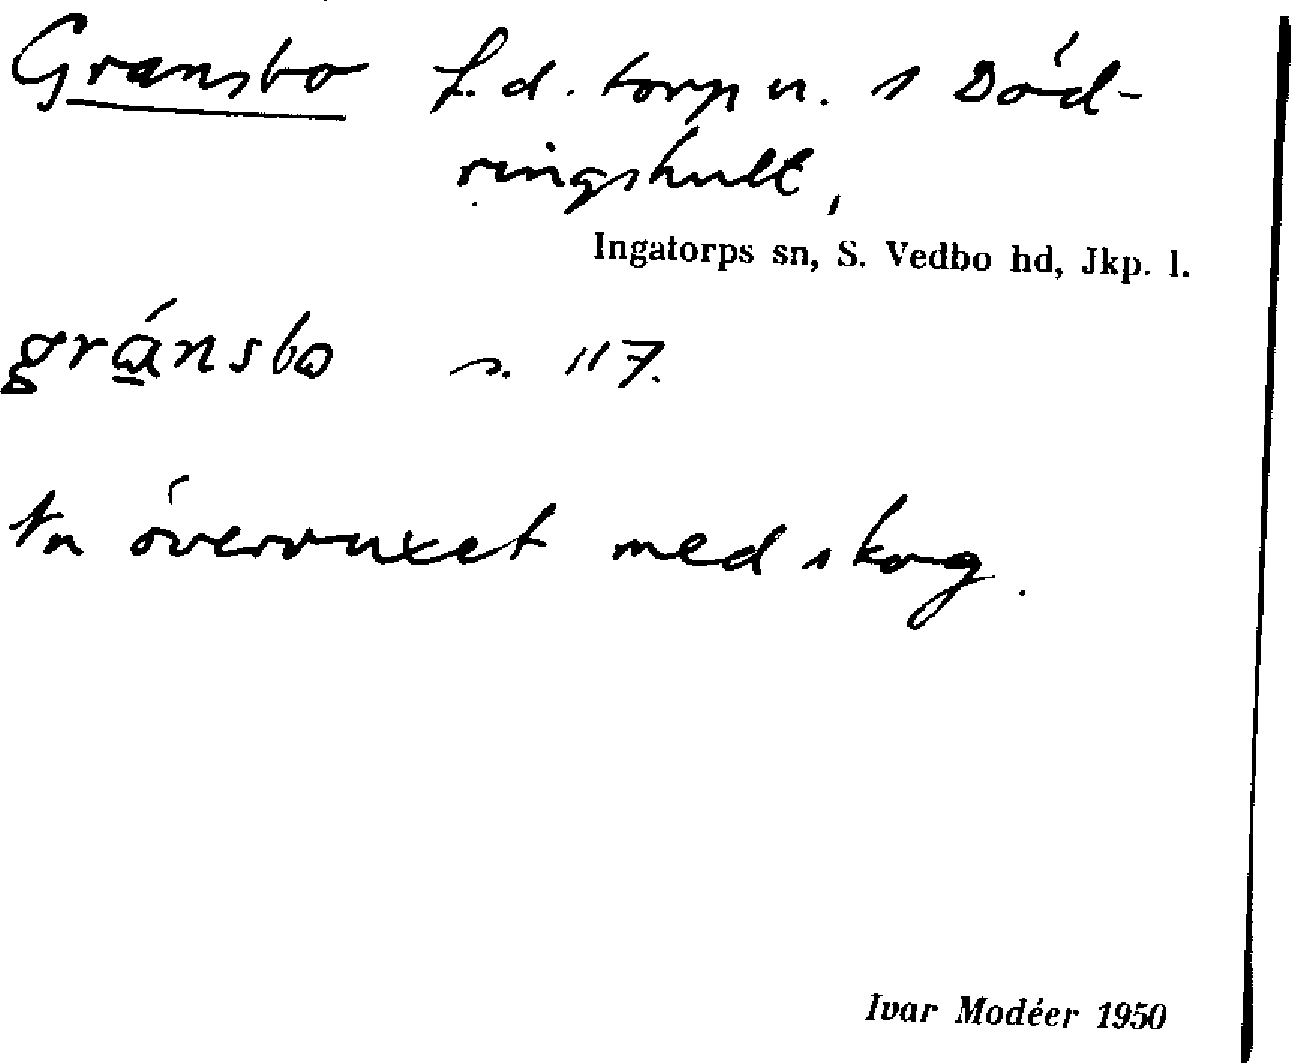 Gransbo f.d. torp u. s Död-
ringshult,
Ingatorps sn, S. Vedbo hd, Jkp. l.
gránsbo s. 117.
Nu övervuxet med skog.
Ivar Modéer 1950